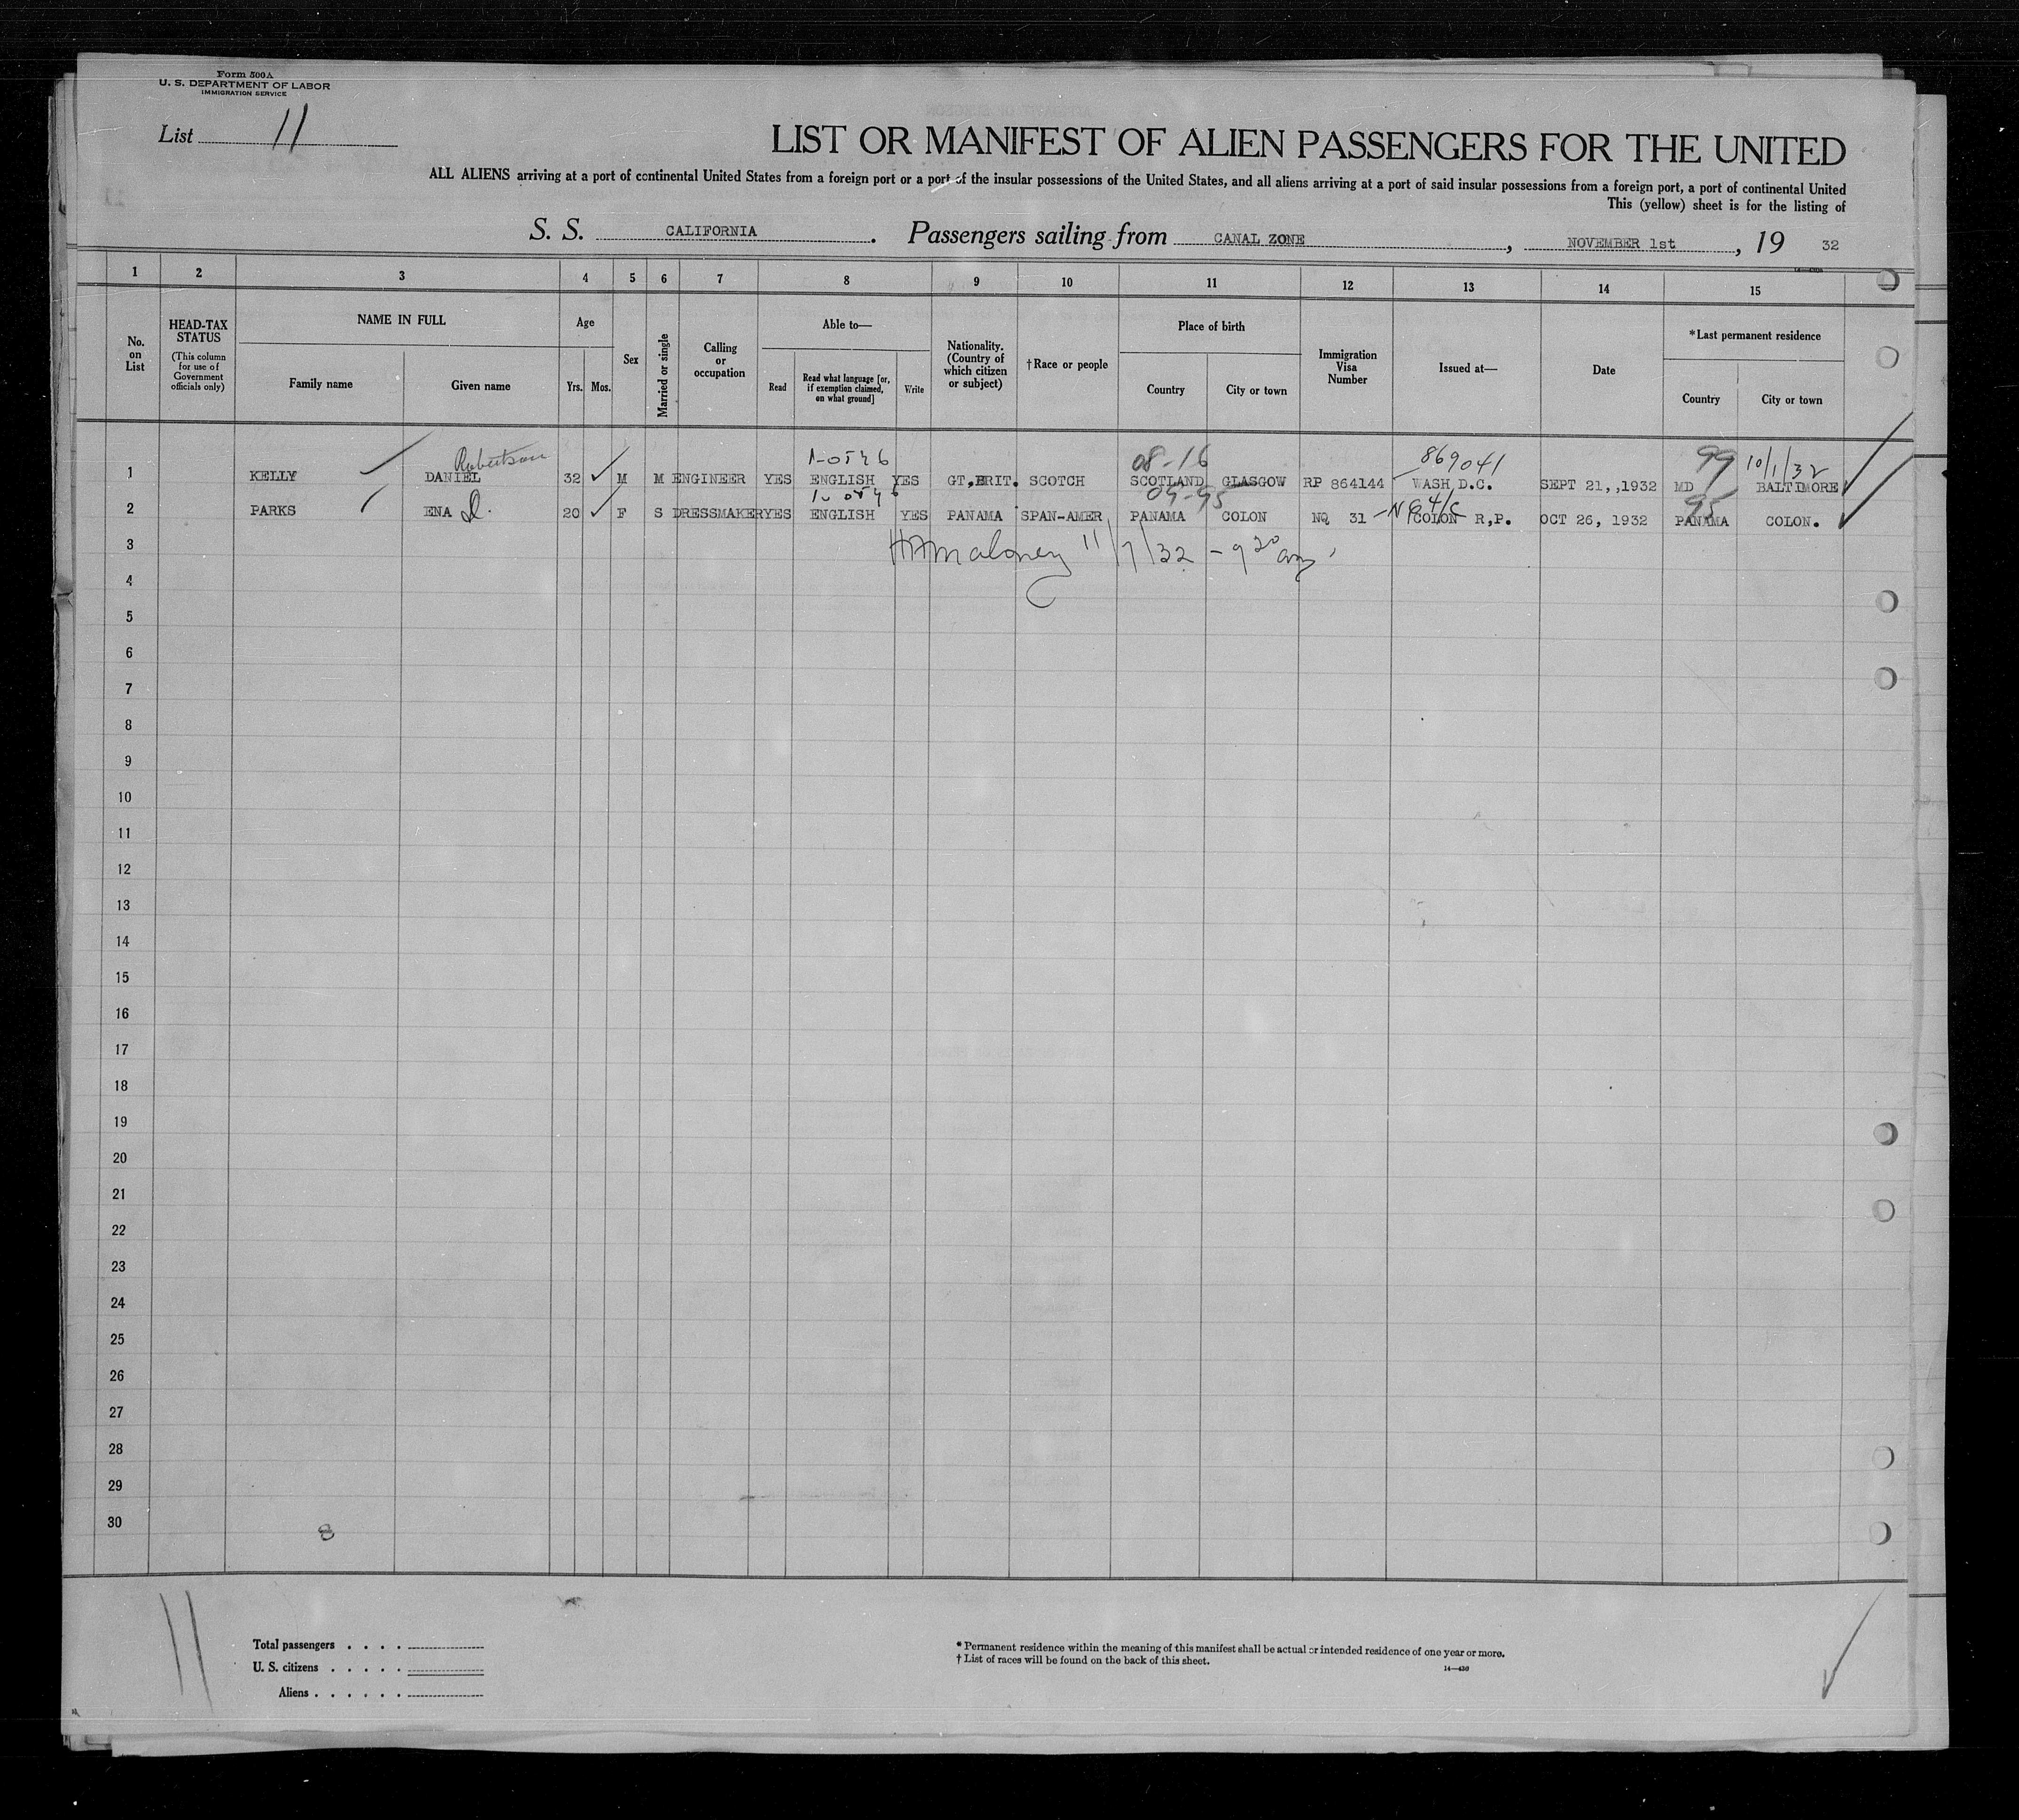 Form 500A
U. S. DEPARTMENT OF LABOR
IMMIGRATION SERVICE
List 11
LIST OR MANIFEST OF ALIEN PASSENGERS FOR THE UNITED
ALL ALIENS arriving at a port of continental United States from a foreign port or a port of the insular possessions of the United States, and all aliens arriving at a port of said insular possessions from a foreign port, a port of continental United
This (yellow) sheet is for the listing of
S. S. CALIFORNIA. Passengers sailing from CANAL ZONE, NOVEMBER 1st, 19 32
1 2 3 4 5 6 7 8 9 10 11 12 13 14 15
No. on List
HEAD-TAX STATUS
(This column for use of Government officials only)
NAME IN FULL
Family name
Given name
Age
Yrs. Mos.
Sex
Married or single
Calling or occupation
Able to—
Read
Read what language [or, if exemption claimed, on what ground]
Write
Nationality. (Country of which citizen or subject)
†Race or people
Place of birth
Country
City or town
Immigration Visa Number
Issued at—
Date
*Last permanent residence
Country
City or town
Robertson 08-16 869041 99 10/1/32
1 KELLY DANIEL 32 M M ENGINEER YES ENGLISH YES GT,BRIT. SCOTCH SCOTLAND GLASGOW RP 864144 WASH D.C. SEPT 21,,1932 MD BALTIMORE
09-95 95
2 PARKS ENA D. 20 F S DRESSMAKER YES ENGLISH YES PANAMA SPAN-AMER PANAMA COLON NQ 31 COLON R,P. OCT 26, 1932 PANAMA COLON.
3 Maloney 11/7/32 - 9 20 am
4
5
6
7
8
9
10
11
12
13
14
15
16
17
18
19
20
21
22
23
24
25
26
27
28
29
30
8
11
Total passengers . . . .
U. S. citizens . . . . .
Aliens . . . . . .
* Permanent residence within the meaning of this manifest shall be actual or intended residence of one year or more.
† List of races will be found on the back of this sheet.
14—430